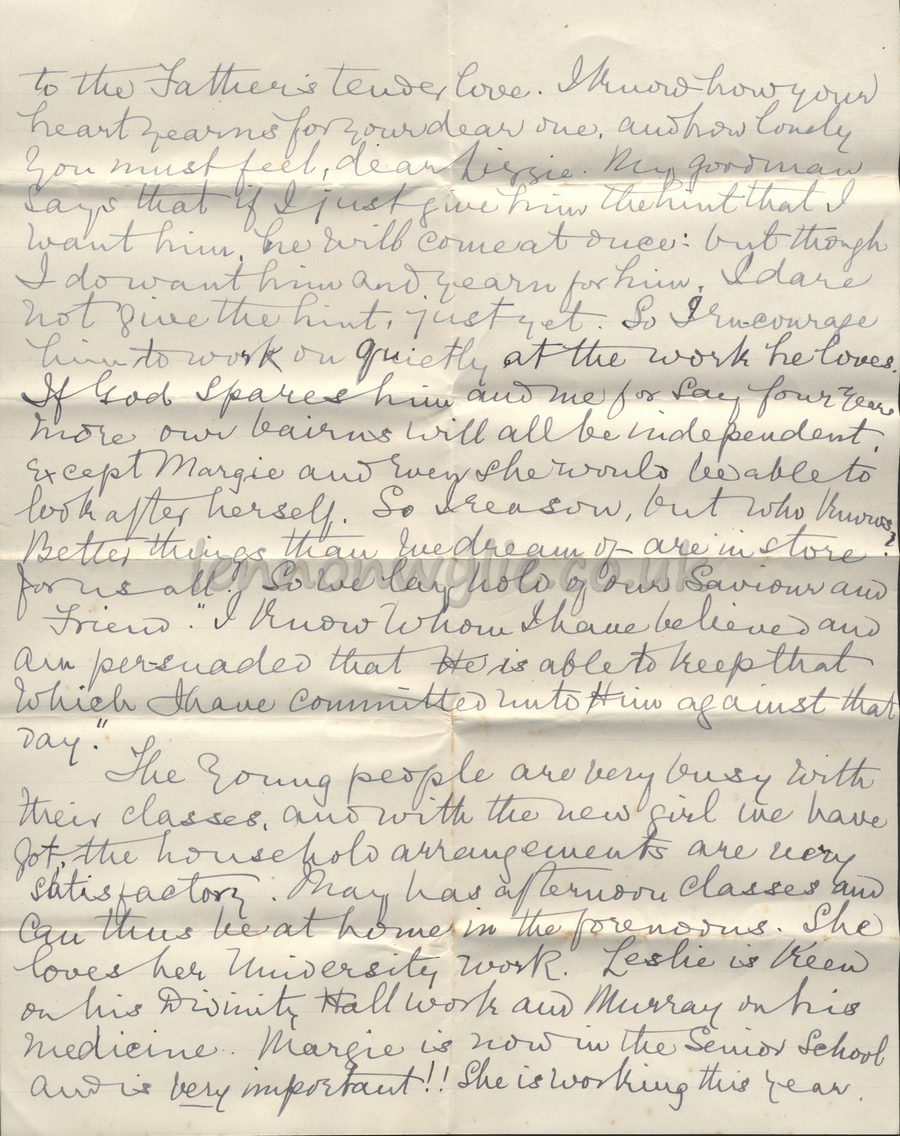 to the Father's tender love. I know how your
heart yearns for your dear one, and how lonely
you must feel, dear Lizzie. My goodman
says that if I just give him the hint that I
want him, he will come at once: but though
I do want him and yearn for him, I dare
not give the hint, just yet. So I encourage
him to work on quietly at the work he loves.
If God spares him and me for say four years
more our bairns will all be independent,
except Margie and even she would be able to
look after herself. So I reason, but who knows?
Better things than we dream of are in store
for us all! So we lay hold of our Saviour and
Friend. "I know Whom I have believed and
am persuaded that He is able to keep that
which I have committed unto Him against that
day."
The young people are very busy with
their classes, and with the new girl we have
got, the household arrangements are very
satisfactory. May has afternoon classes and
can thus be at home in the forenoons. She
loves her University work. Leslie is keen
on his Divinity Hall work and Murray on his
medicine. Margie is now in the Senior School
and is very important!! She is working this year
lennonwylie.co.uk